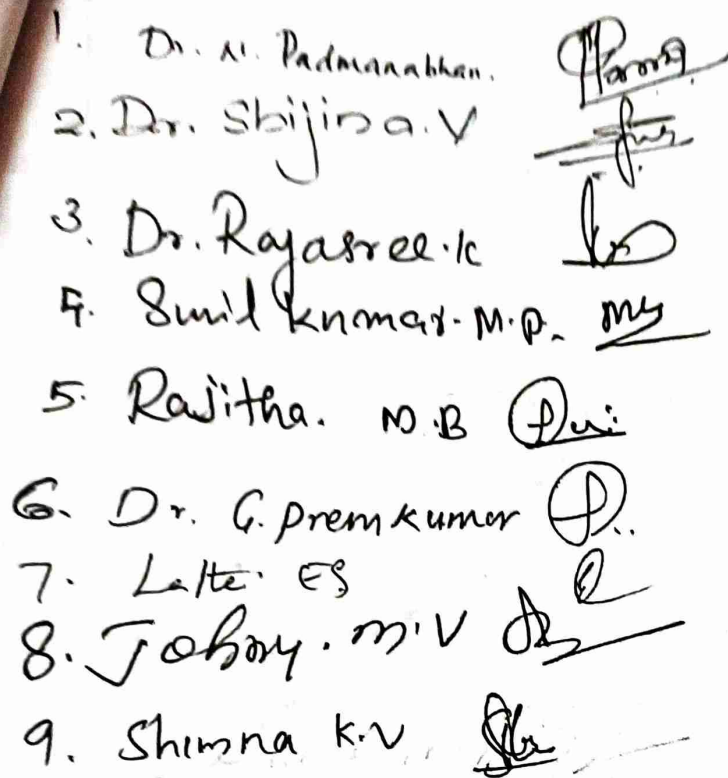 1. Dr. N. Padmanabhan.
2. Dr. Shijina. V
3. Dr. Rajasree. K
4. Sunil Kumar. M.P.
5. Rajitha. N.B
6. Dr. G. Premkumar
7. ES
8. Johny. M.V
9. Shimna K.V